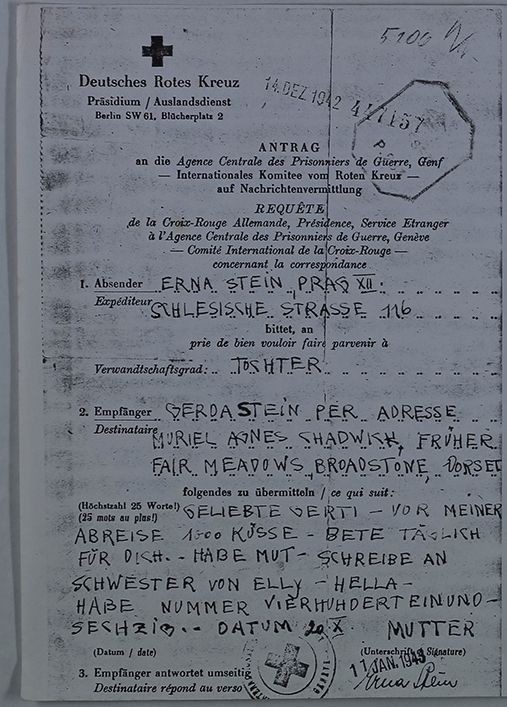 5100
Deutsches Rotes Kreuz
Präsidium / Auslandsdienst
Berlin SW 61, Blücherplatz 2
14. DEZ 1942 417157
ANTRAG
an die Agence Centrale des Prisonniers de Guerre, Genf
— Internationales Komitee vom Roten Kreuz —
auf Nachrichtenvermittlung
REQUÊTE
de la Croix-Rouge Allemande, Présidence, Service Etranger
à l'Agence Centrale des Prisonniers de Guerre, Genève
— Comité International de la Croix-Rouge —
concernant la correspondance
1. Absender ERNA STEIN, PRAG XII.
Expéditeur SCHLESISCHE STRASSE 116
bittet, an
prie de bien vouloir faire parvenir à
Verwandtschaftsgrad: TOCHTER
2. Empfänger GERDA STEIN PER ADRESSE
Destinataire MURIEL AGNES CHADWICK, FRÜHER
FAIR MEADOWS, BROADSTONE, DORSET
folgendes zu übermitteln / ce qui suit:
(Höchstzahl 25 Worte!) GELIEBTE GERTI – VOR MEINER
(25 mots au plus!)
ABREISE 1000 KÜSSE – BETE TÄGLICH
FÜR DICH. – HABE MUT – SCHREIBE AN
SCHWESTER VON ELLY – HELLA –
HABE NUMMER VIERHUNDERTEINUND–
SECHZIG. – DATUM 20 X. MUTTER
(Datum / date) (Unterschrift / Signature)
11 JAN. 1943
3. Empfänger antwortet umseitig Erna Stein
Destinataire répond au verso